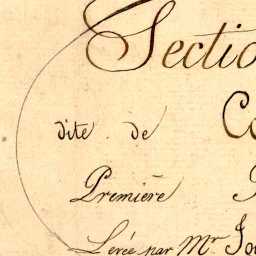 Sectio
dite de Co
Première
Levée par Mr. Jo